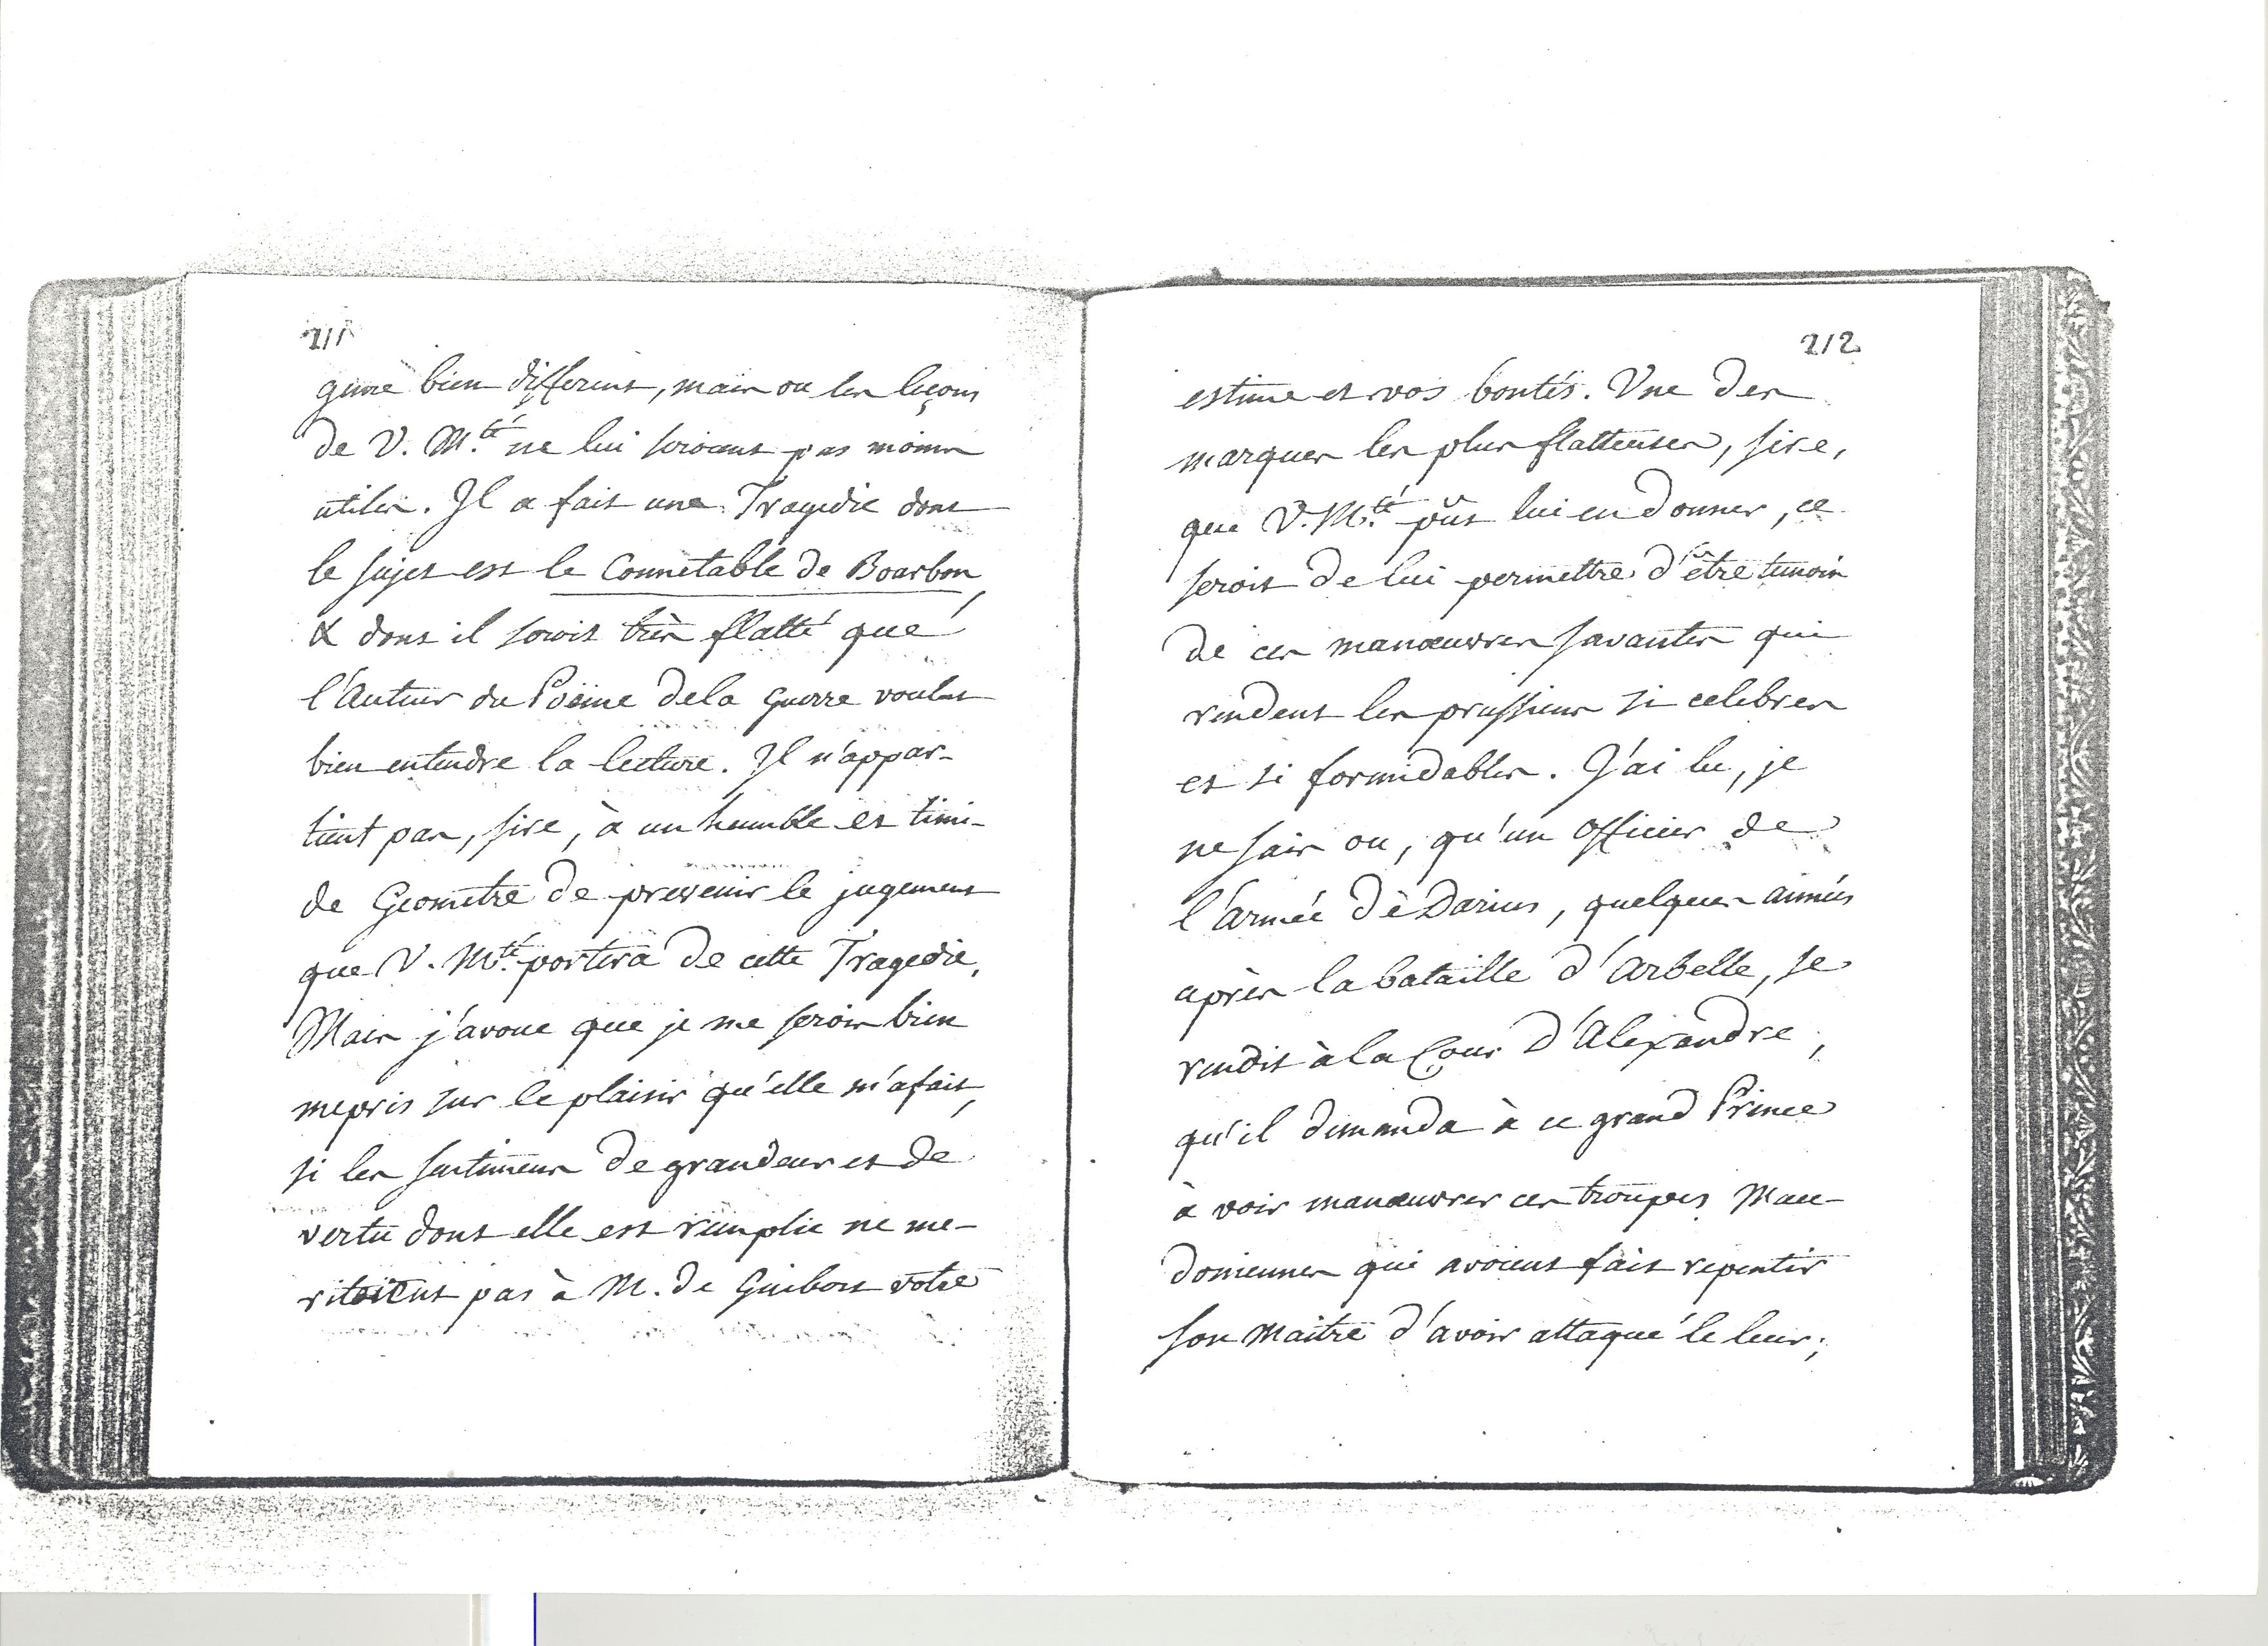 211
genre bien differens, mais ou les leçons
de V. M.té ne lui seroient pas moins
utiles. Il a fait une Tragedie dont
le sujet est le Connetable de Bourbon,
& dont il seroit très flatté que
l'Auteur du Poëme de la Guerre voulut
bien entendre la lecture. Il n'appar-
tient pas, sire, à un humble et timi-
de Geometre de prevenir le jugement
que V. M.té portera de cette Tragedie,
Mais j'avoue que je me serois bien
mepris sur le plaisir qu'elle m'a fait,
si les sentimens de grandeur et de
vertu dont elle est remplie ne me-
ritoient pas à M. de Guibert votre
212
estime et vos bontés. Une des
marques les plus flatteuses, sire,
que V. M.té pût lui en donner, ce
seroit de lui permettre d'être temoin
de ces manœuvres savantes qui
rendent les prussiens si celebres
et si formidables. J'ai lu, je
ne sais ou, qu'un officier de
l'armée de Darius, quelques années
après la bataille d'Arbelle, se
rendit à la Cour d'Alexandre,
qu'il demanda à ce grand Prince
à voir manœuvrer ces troupes Mace-
doniennes qui avoient fait repentir
son Maitre d'avoir attaqué le leur;